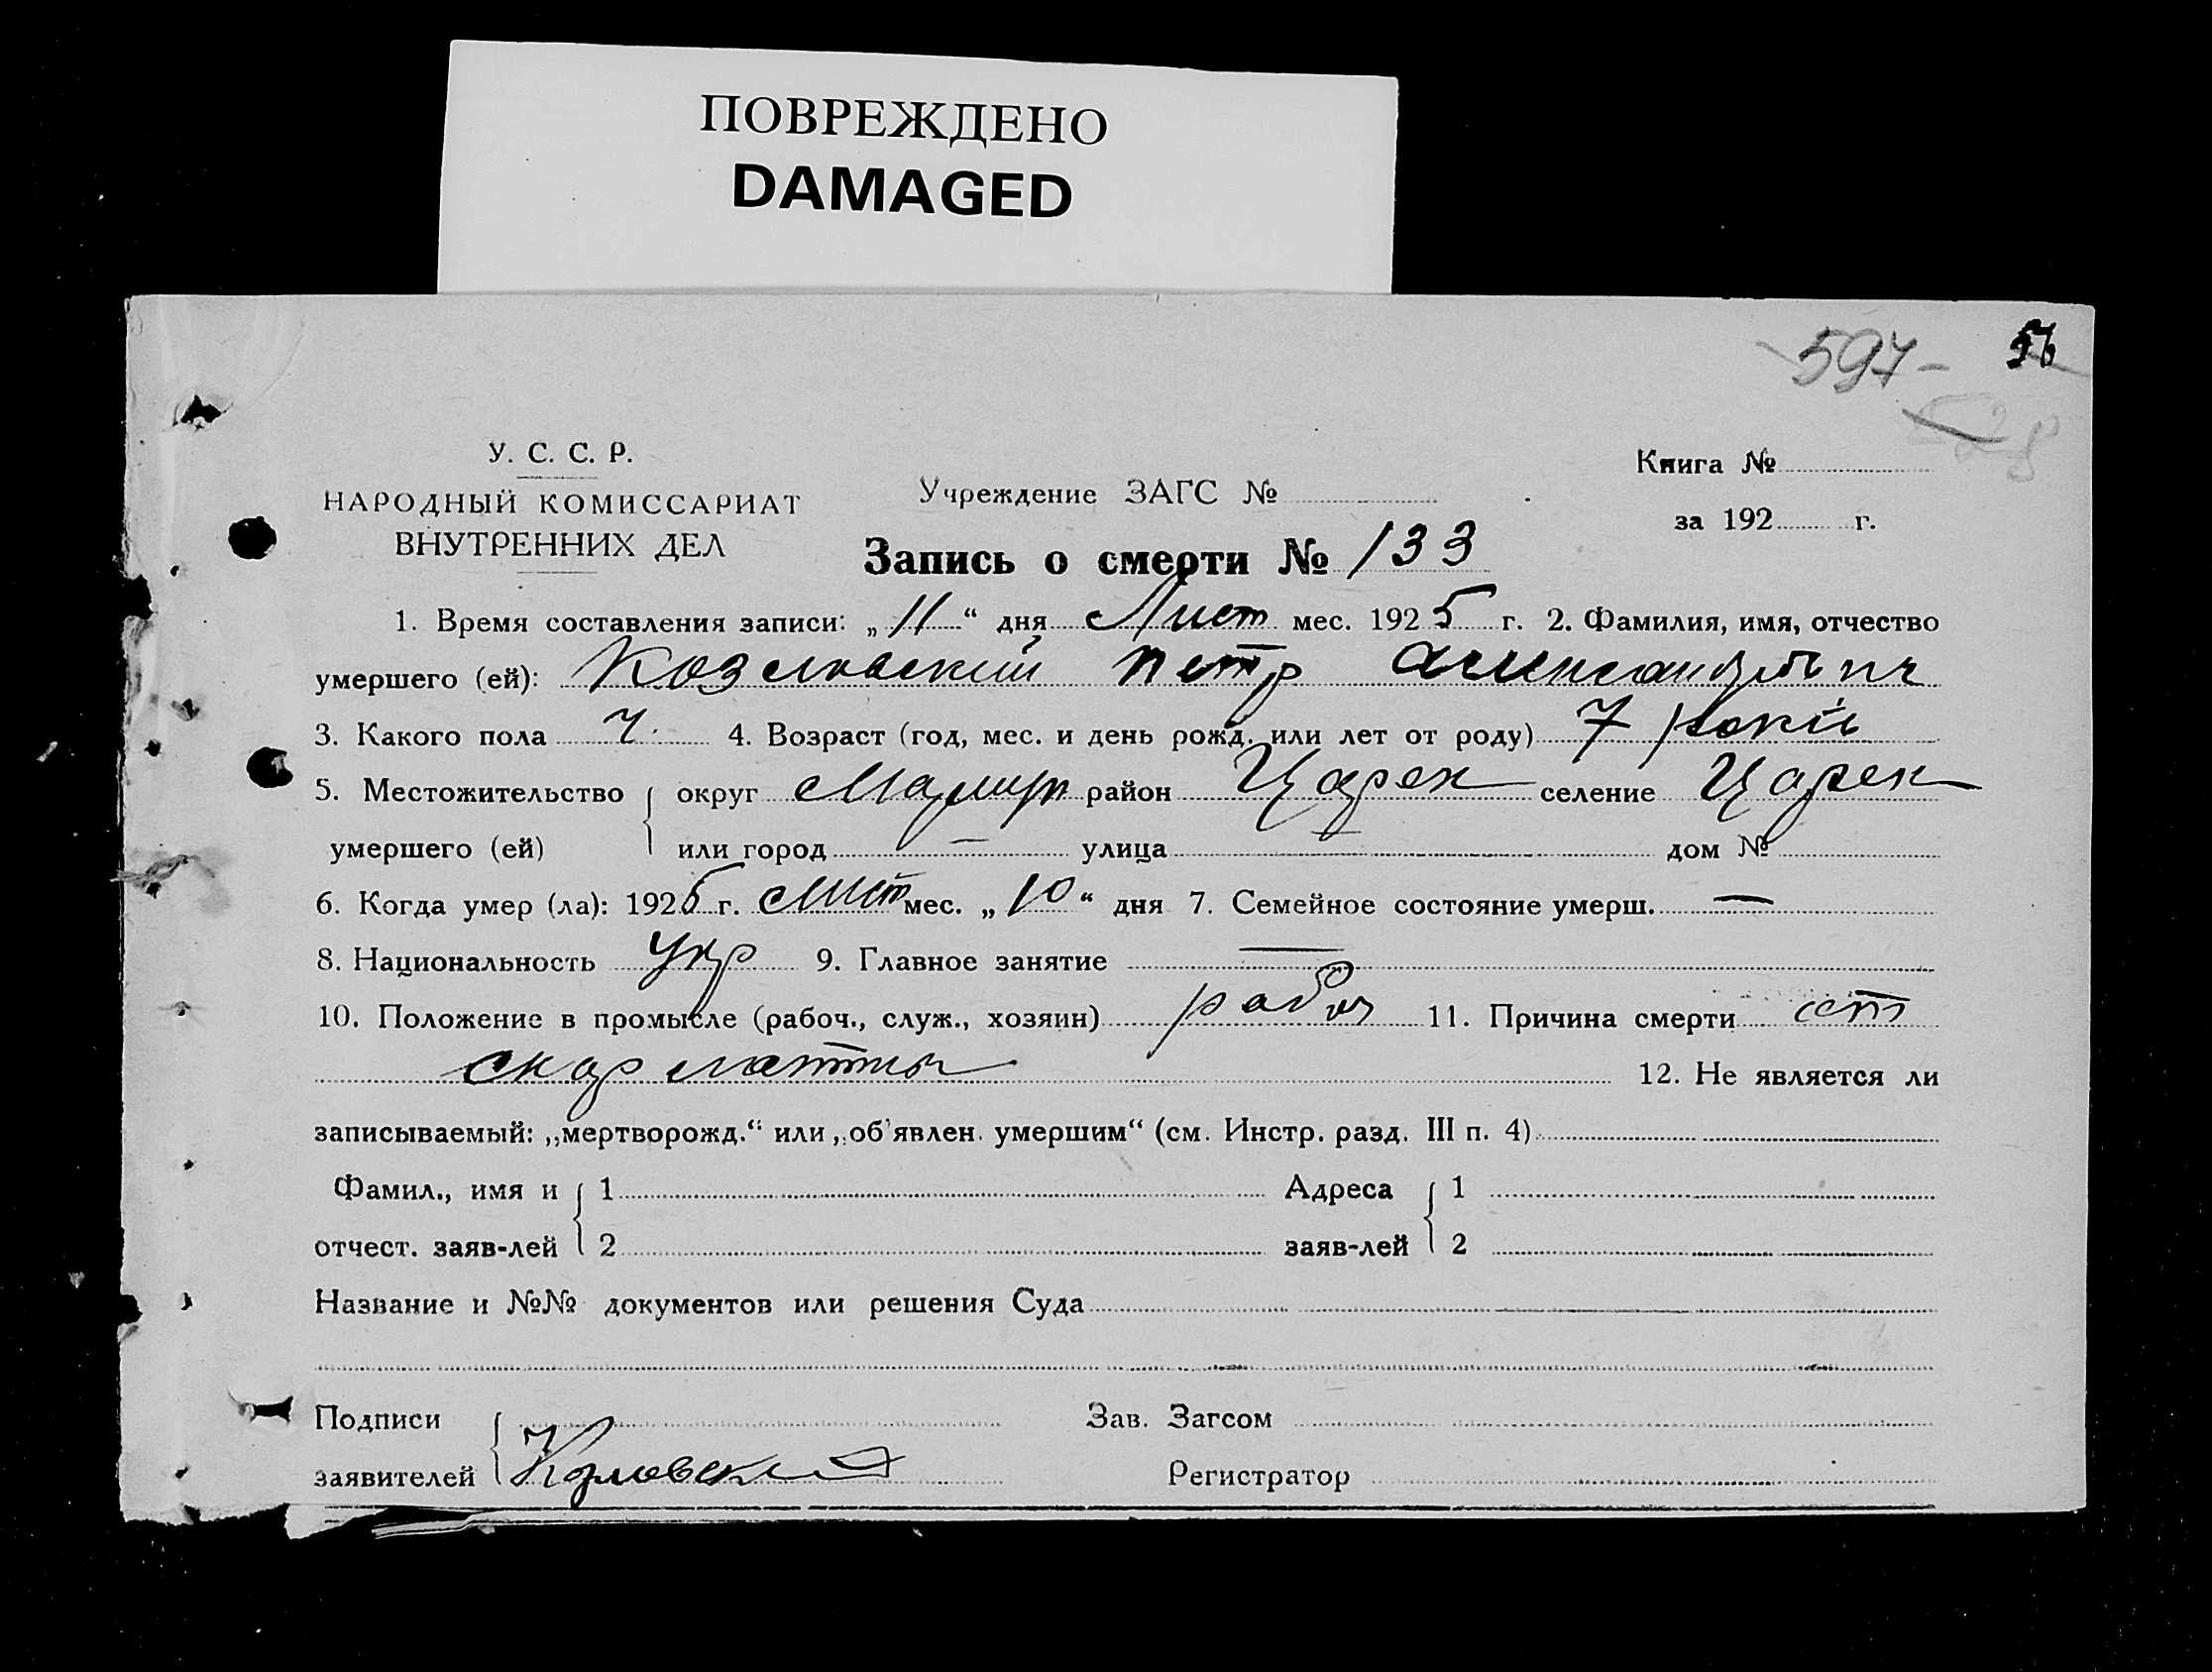 ПОВРЕЖДЕНО
DAMAGED
597- 56
У. С. С. Р.
НАРОДНЫЙ КОМИССАРИАТ
ВНУТРЕННИХ ДЕЛ
Учреждение ЗАГС №
Книга №
за 192 г.
Запись о смерти № 133
1. Время составления записи: „11“ дня Лист мес. 1925 г. 2. Фамилия, имя, отчество
умершего (ей): Козловский Петр
3. Какого пола ч. 4. Возраст (год, мес. и день рожд. или лет от роду) 7 років
5. Местожительство округ район Царек селение Царек
умершего (ей) или город — улица — дом №
6. Когда умер (ла): 1925 г. Лист мес. „10“ дня 7. Семейное состояние умерш. —
8. Национальность укр 9. Главное занятие —
10. Положение в промысле (рабоч., служ., хозяин) 11. Причина смерти от
скарлатины
12. Не является ли
записываемый: „мертворожд.“ или „об'явлен. умершим“ (см. Инстр. разд. III п. 4)
Фамил., имя и 1 Адреса 1
отчест. заяв-лей 2 заяв-лей 2
Название и №№ документов или решения Суда
Подписи Зав. Загсом
заявителей Козловский Регистратор